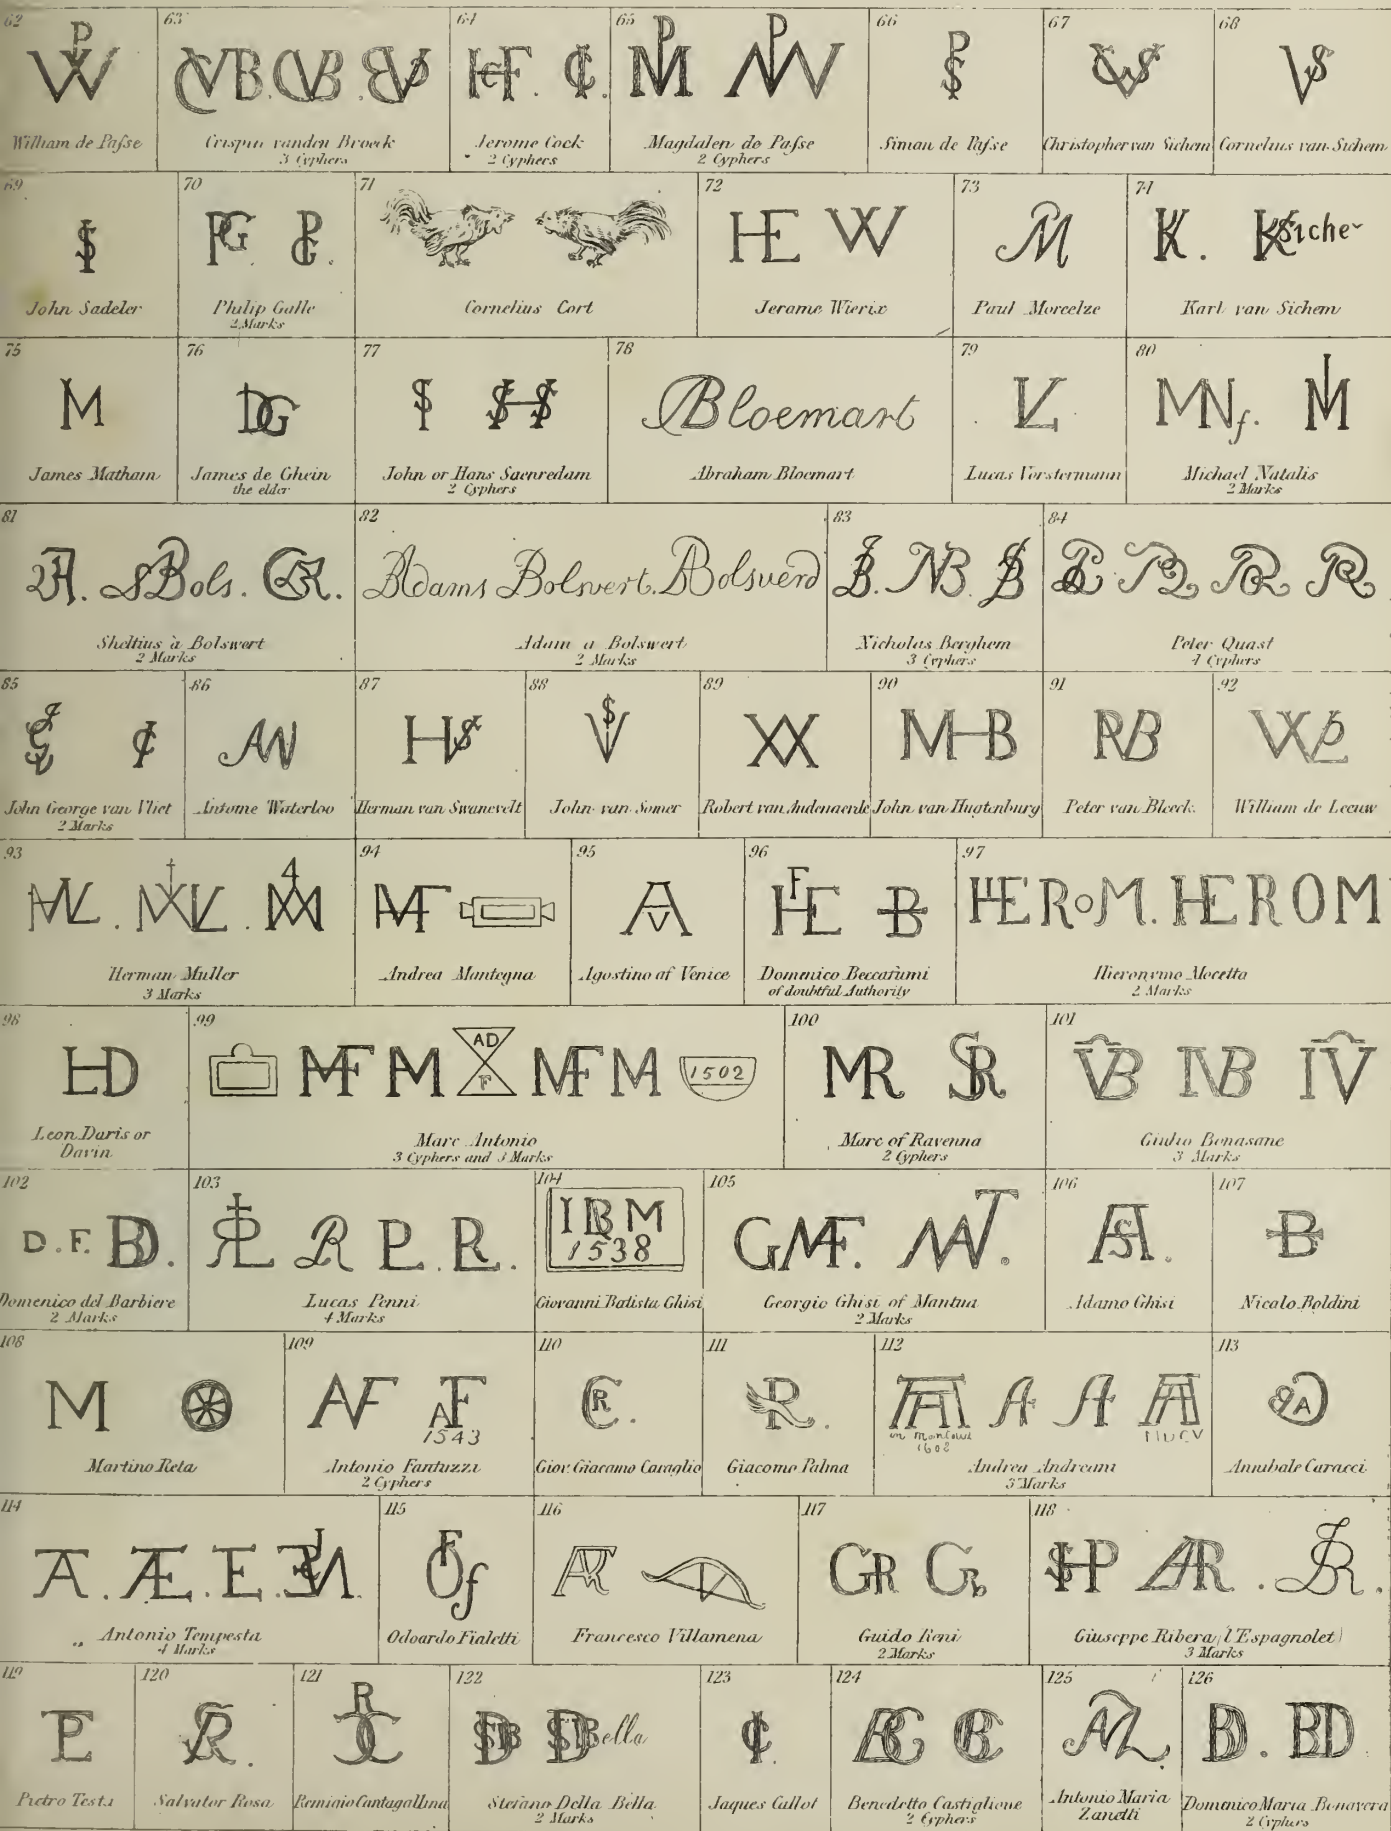 62
William de Paſse
63
Crispin vanden Broeck
3 Cyphers
64
Jerome Cock
2 Cyphers
65
Magdalen de Paſse
2 Cyphers
66
Simon de Paſse
67
Christopher van Sichem
68
Cornelius van Sichem
69
John Sadeler
70
Philip Galle
2 Marks
71
Cornelius Cort
72
HE W
Jerome Wierix
73
Paul Moreelze
74
K. Ksiche
Karl van Sichem
75
M
James Matham
76
DG
James de Ghein
the elder
77
John or Hans Saenredam
2 Cyphers
78
ABloemart
Abraham Bloemart
79
VL
Lucas Vorstermann
80
MNf. M
Michael Natalis
2 Marks
81
SBols.
Sheltius à Bolswert
2 Marks
82
BAdams Bolswert. ABolsuerd
Adam a Bolswert
2 Marks
83
Nicholas Berghem
3 Cyphers
84
Peter Quast
4 Cyphers
85
John George van Vliet
2 Marks
86
AW
Antoine Waterloo
87
HVS
Herman van Swanevelt
88
John van Somer
89
Robert van Audenaerde
90
MHB
John van Hugtenburg
91
PVB
Peter van Bleeck
92
William de Leeuw
93
Herman Muller
3 Marks
94
Andrea Mantegna
95
Agostino of Venice
96
Domenico Beccafumi
of doubtful Authority
97
HEROM. HEROM
Hieronymo Mocetto
2 Marks
98
HD
Leon Daris or
Davin
99
MF M AD F MF M 1502
Marc Antonio
3 Cyphers and 3 Marks
100
MR SR
Marc of Ravenna
2 Cyphers
101
VB IVB IV
Giulio Bonasone
3 Marks
102
D.F. BD.
Domenico del Barbiere
2 Marks
103
Lucas Penni
4 Marks
104
IBM
1538
Giovanni Batista Ghisi
105
GMF.
Georgio Ghisi of Mantua
2 Marks
106
Adamo Ghisi
107
B
Nicolo Boldini
108
M
Martino Rota
109
AF AF
1543
Antonio Fantuzzi
2 Cyphers
110
Giov. Giacomo Caraglio
111
Giacomo Palma
112
1602
Andrea Andreani
3 Marks
113
Annibale Caracci
114
Antonio Tempesta
4 Marks
115
Odoardo Fialetti
116
Francesco Villamena
117
GR
Guido Reni
2 Marks
118
Giuseppe Ribera (l'Espagnolet)
3 Marks
119
Pietro Testa
120
Salvator Rosa
121
Remigio Cantagallina
122
Stefano Della Bella
2 Marks
123
Jaques Callot
124
Benedetto Castiglione
2 Cyphers
125
Antonio Maria
Zanetti
126
BD. BD
Domenico Maria Bonavera
2 Cyphers